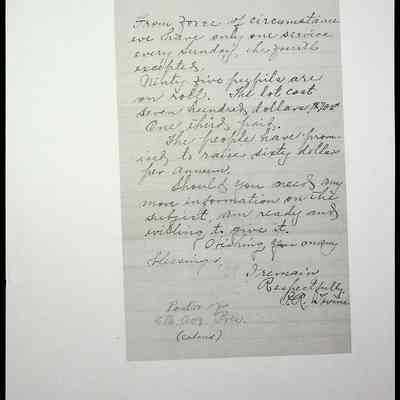 From force of circumstance
we have only one service
every Sunday, the fourth
excepted.
Ninty five pupils are
on roll. The lot cost
seven hundred dollars $700.00
One third paid.
The people have prom-
ised to raise sixty dollars
per annum.
Should you need any
more information on the
subject, am ready and
willing to give it.
Wishing you many
blessings,
I remain
Respectfully
Pastor of
6th Ave. Pres.
(colored)